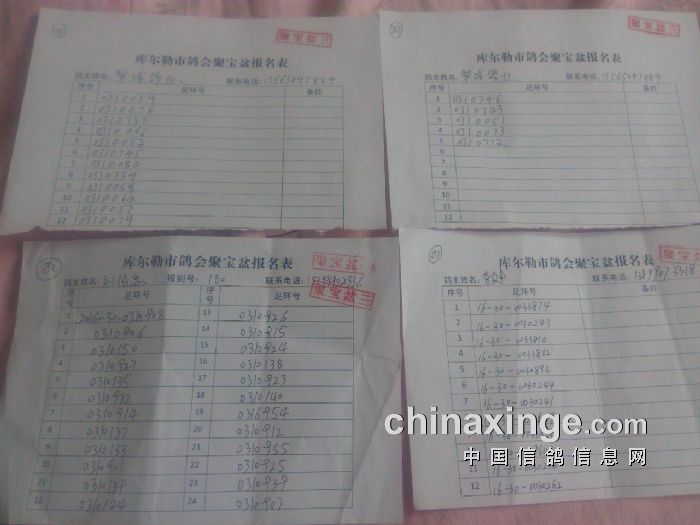 聚宝盆三
库尔勒市鸽会聚宝盆报名表
鸽主姓名: 联系电话: 13565047884
序号 足环号 备注
1 0310054
2 0310076
3 0310737
4 0310066
5 0310052
6 0310745
7 0310080
8 0310734
9 0310058
10 0310062
11 0310057
12 0310074
聚宝盆三
库尔勒市鸽会聚宝盆报名表
鸽主姓名: 联系电话: 13565047884
序号 足环号 备注
1 0310746
2 0310723
3 0310051
4 0310073
5 0310712
6
7
8
9
10
11
12
聚宝盆
库尔勒市鸽会聚宝盆报名表
鸽主姓名: 报到号: 联系电话:
聚宝盆三
序号 足环号 序号 足环号
1 2016-30-0310908 13 0310926
2 0310906 14 0310915
3 0310150 15 0310924
4 0310927 16 0310138
5 0310135 17 0310923
6 0310932 18 0310140
7 0310914 19 0310954
8 0310137 20 0310912
9 0310133 21 0310955
10 0310901 22 0310925
11 0310128 23 0310939
12 0310124 24 0310907
聚宝盆三
库尔勒市鸽会聚宝盆报名表
鸽主姓名: 联系电话:
序号 足环号 备注
1 16-30-0033814
2 16-30-0030243
3 16-30-0033810
4 16-30-0033822
5 16-30-0030893
6 16-30-0030244
7 16-30-0030241
11
12 16-30-0030262
chinaxinge.com
中国信鸽信息网